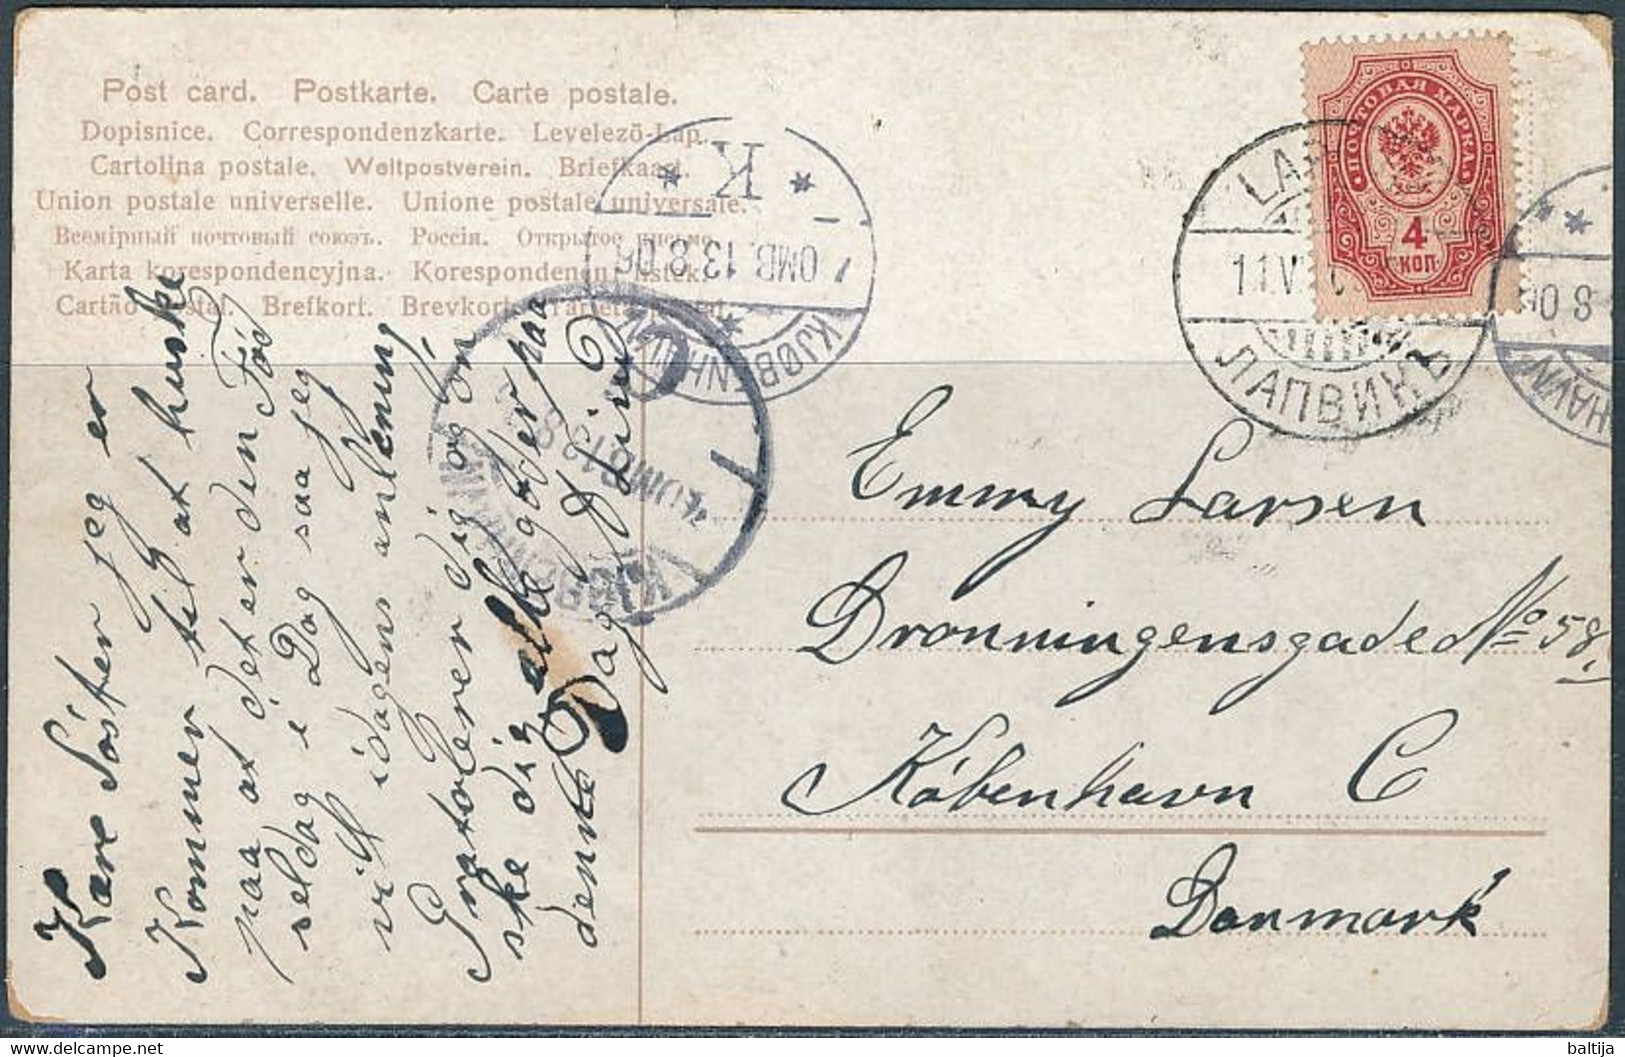 Post card. Postkarte. Carte postale.
Dopisnice. Correspondenzkarte. Levelező-Lap.
Cartolina postale. Weltpostverein. Briefkaart.
Union postale universelle. Unione postale universale.
Всемірный почтовый союзъ. Россія. Открытое письмо.
Karta korespondencyjna. Korespondenční lístek.
Cartão postal. Brefkort. Brevkort. Tarjeta postal.
K
OMB. 13.8.06
KJØBENHAVN
KJØBENHAVN
ПОЧТОВАЯ МАРКА
4
КОП
ЛАПВИКЪ
8 06
HAVN
Kære Söster jeg er
Kommer til at huske
paa at det er den Fös
seldag i Dag saa jeg
vill idagens anlenng
Gratolerer dig og ön
ske dig alt got er kaa
denke Dag Din
Emmy Larsen
Dronningensgade No 58,
Köbenhavn C
Danmark
baltija